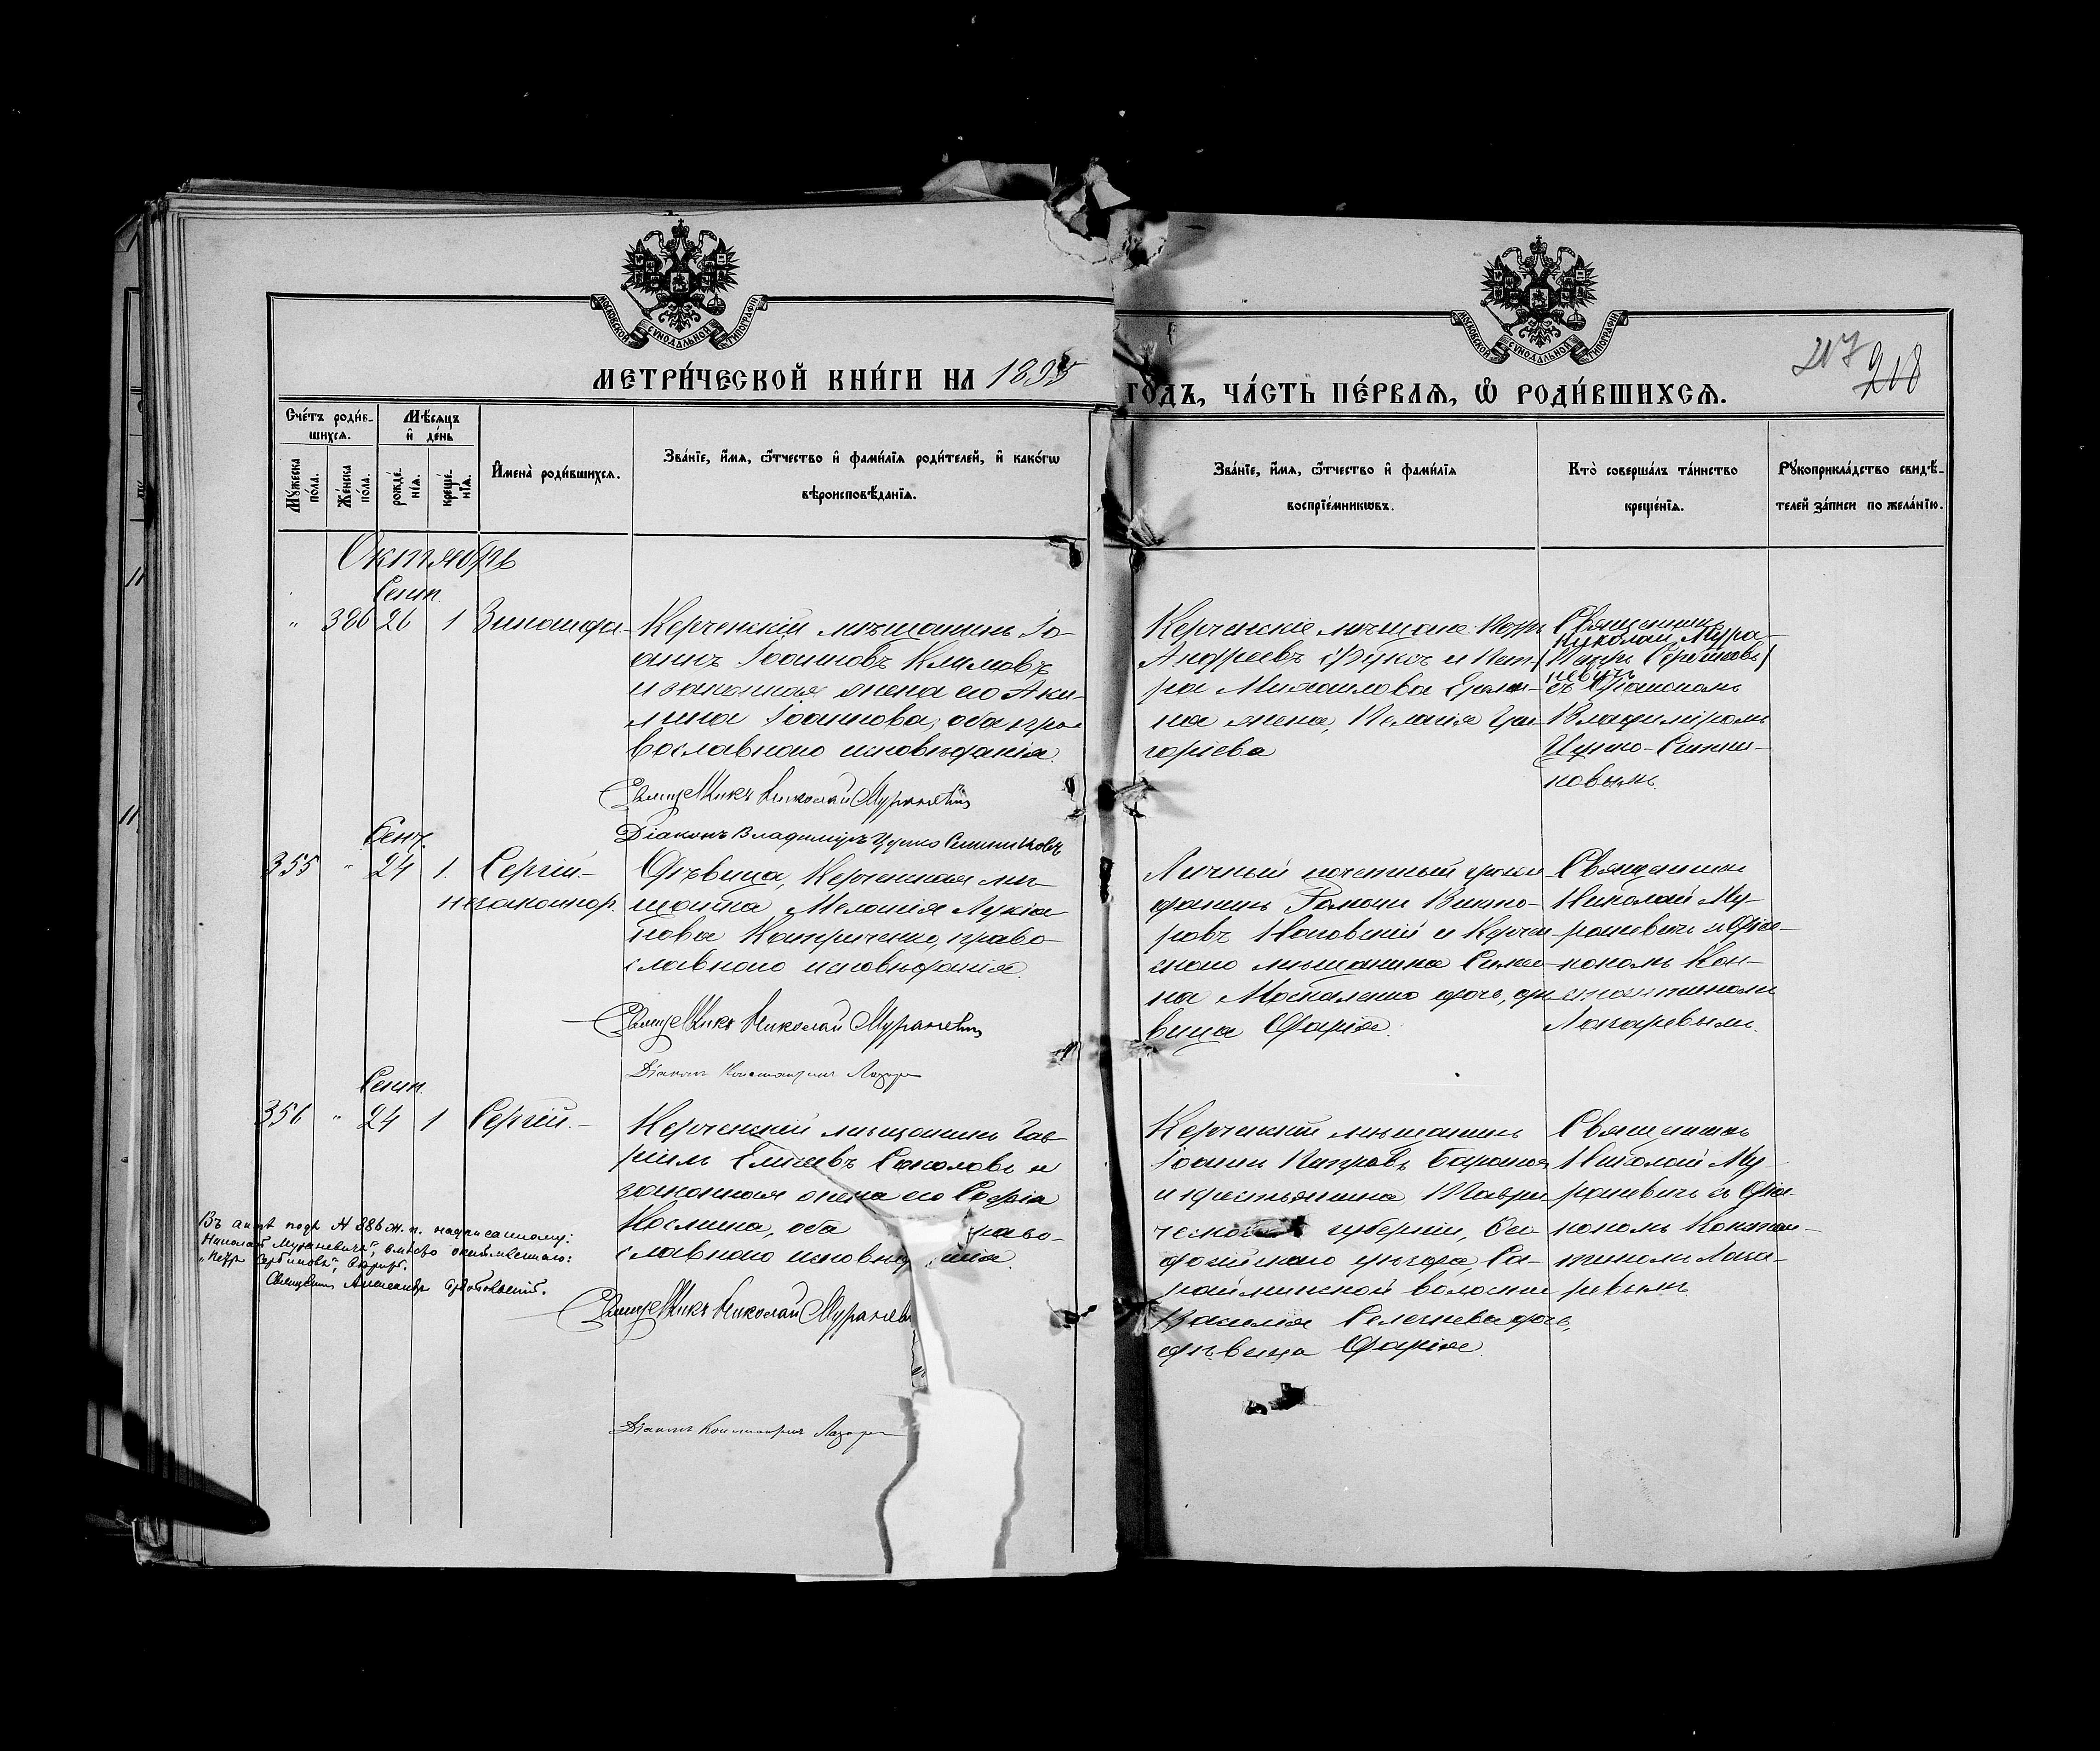 МОСКОВСКОЙ СѴНОДАЛЬНОЙ ТИПОГРАФІИ
МОСКОВСКОЙ СѴНОДАЛЬНОЙ ТИПОГРАФІИ
МЕТРИ́ЧЕСКОЙ КНИ́ГИ НА 1895
ГОДЪ, ЧА́СТЬ ПЕ́РВАѦ, Ѽ РОДИ́ВШИХСѦ.
217
218
Сче́тъ роди́в-
шихсѧ.
Мѣ́сѧцъ
и҆ де́нь
Мꙋ́жеска
по́ла.
Же́нска
по́ла.
рожде́-
нїѧ.
креще́-
нїѧ.
И҆мена̀ роди́вшихсѧ.
Зва́нїе, и҆́мѧ, ѻ҆́тчество и҆ фами́лїѧ роди́телей, и҆ како́гѡ
вѣроисповѣ́данїѧ.
Зва́нїе, и҆́мѧ, ѻ҆́тчество и҆ фами́лїѧ
воспрїе́мникѡвъ.
Кто̀ соверша́лъ та́инство
креще́нїѧ.
Рꙋкоприкла́дство свидѣ́-
телей за́писи по жела́нїю.
Октябрь
Сент.
" 386 26 1 Зинаида
Керченскій мѣщанинъ Іо-
аннъ Іоанновъ Климовъ
и законная жена его Аки-
лина Іоаннова, оба пра-
вославнаго исповѣданія.
Священникъ Николай Мураневичъ
Діаконъ Владиміръ Цушко Синниковъ
Керченскіе мѣщане: Петръ
Андреевъ и
ра Михаилова
на жена, Пелагія Гри-
горіева
Священникъ
Николай Мура-
(Петръ Сербиновъ)
невичъ
съ Діакономъ
Владиміромъ
Цушко-Синни-
ковымъ.
Сент.
355 " 24 1. Сергій-
незаконнор.
Дѣвица, Керченская мѣ-
щанка Меланія Лукіа-
нова Кондриченко, право-
славнаго исповѣданія.
Священникъ Николай Мураневичъ
Діаконъ Константинъ Лазаре
Личный почетный граж-
данинъ Викто-
ровъ и Керчен-
скаго мѣщанина Симео-
на Москаленко дочь, дѣ-
вица Марія.
Священникъ
Николай Му-
раневичъ съ Діа-
кономъ Кон-
стантиномъ
Лазаревымъ.
Сент.
356 " 24 1 Сергій.-
Керченскій мѣщанинъ Гав-
ріилъ Соколовъ и
законная жена его Софія
Космина, оба раво-
славнаго исповѣд нія.
Священникъ Николай Муранев
Діаконъ Константинъ Лазаре
Керченскій мѣщанинъ
Іоаннъ Петровъ
и крестьянина Таври-
ческой губерніи, Ѳео-
досійскаго уѣзда, Са-
райминской волости
Василія Селезнева дочь,
дѣвица Марія.
Священникъ
Николай Му-
раневичъ съ Діа-
кономъ Констан-
тиномъ Лаза-
ревымъ.
Въ актѣ подъ № 386 ж. п. надписанному:
"Николай Мураневичъ", вмѣсто
"Петръ Сербиновъ", вѣрить.
Священникъ Александръ